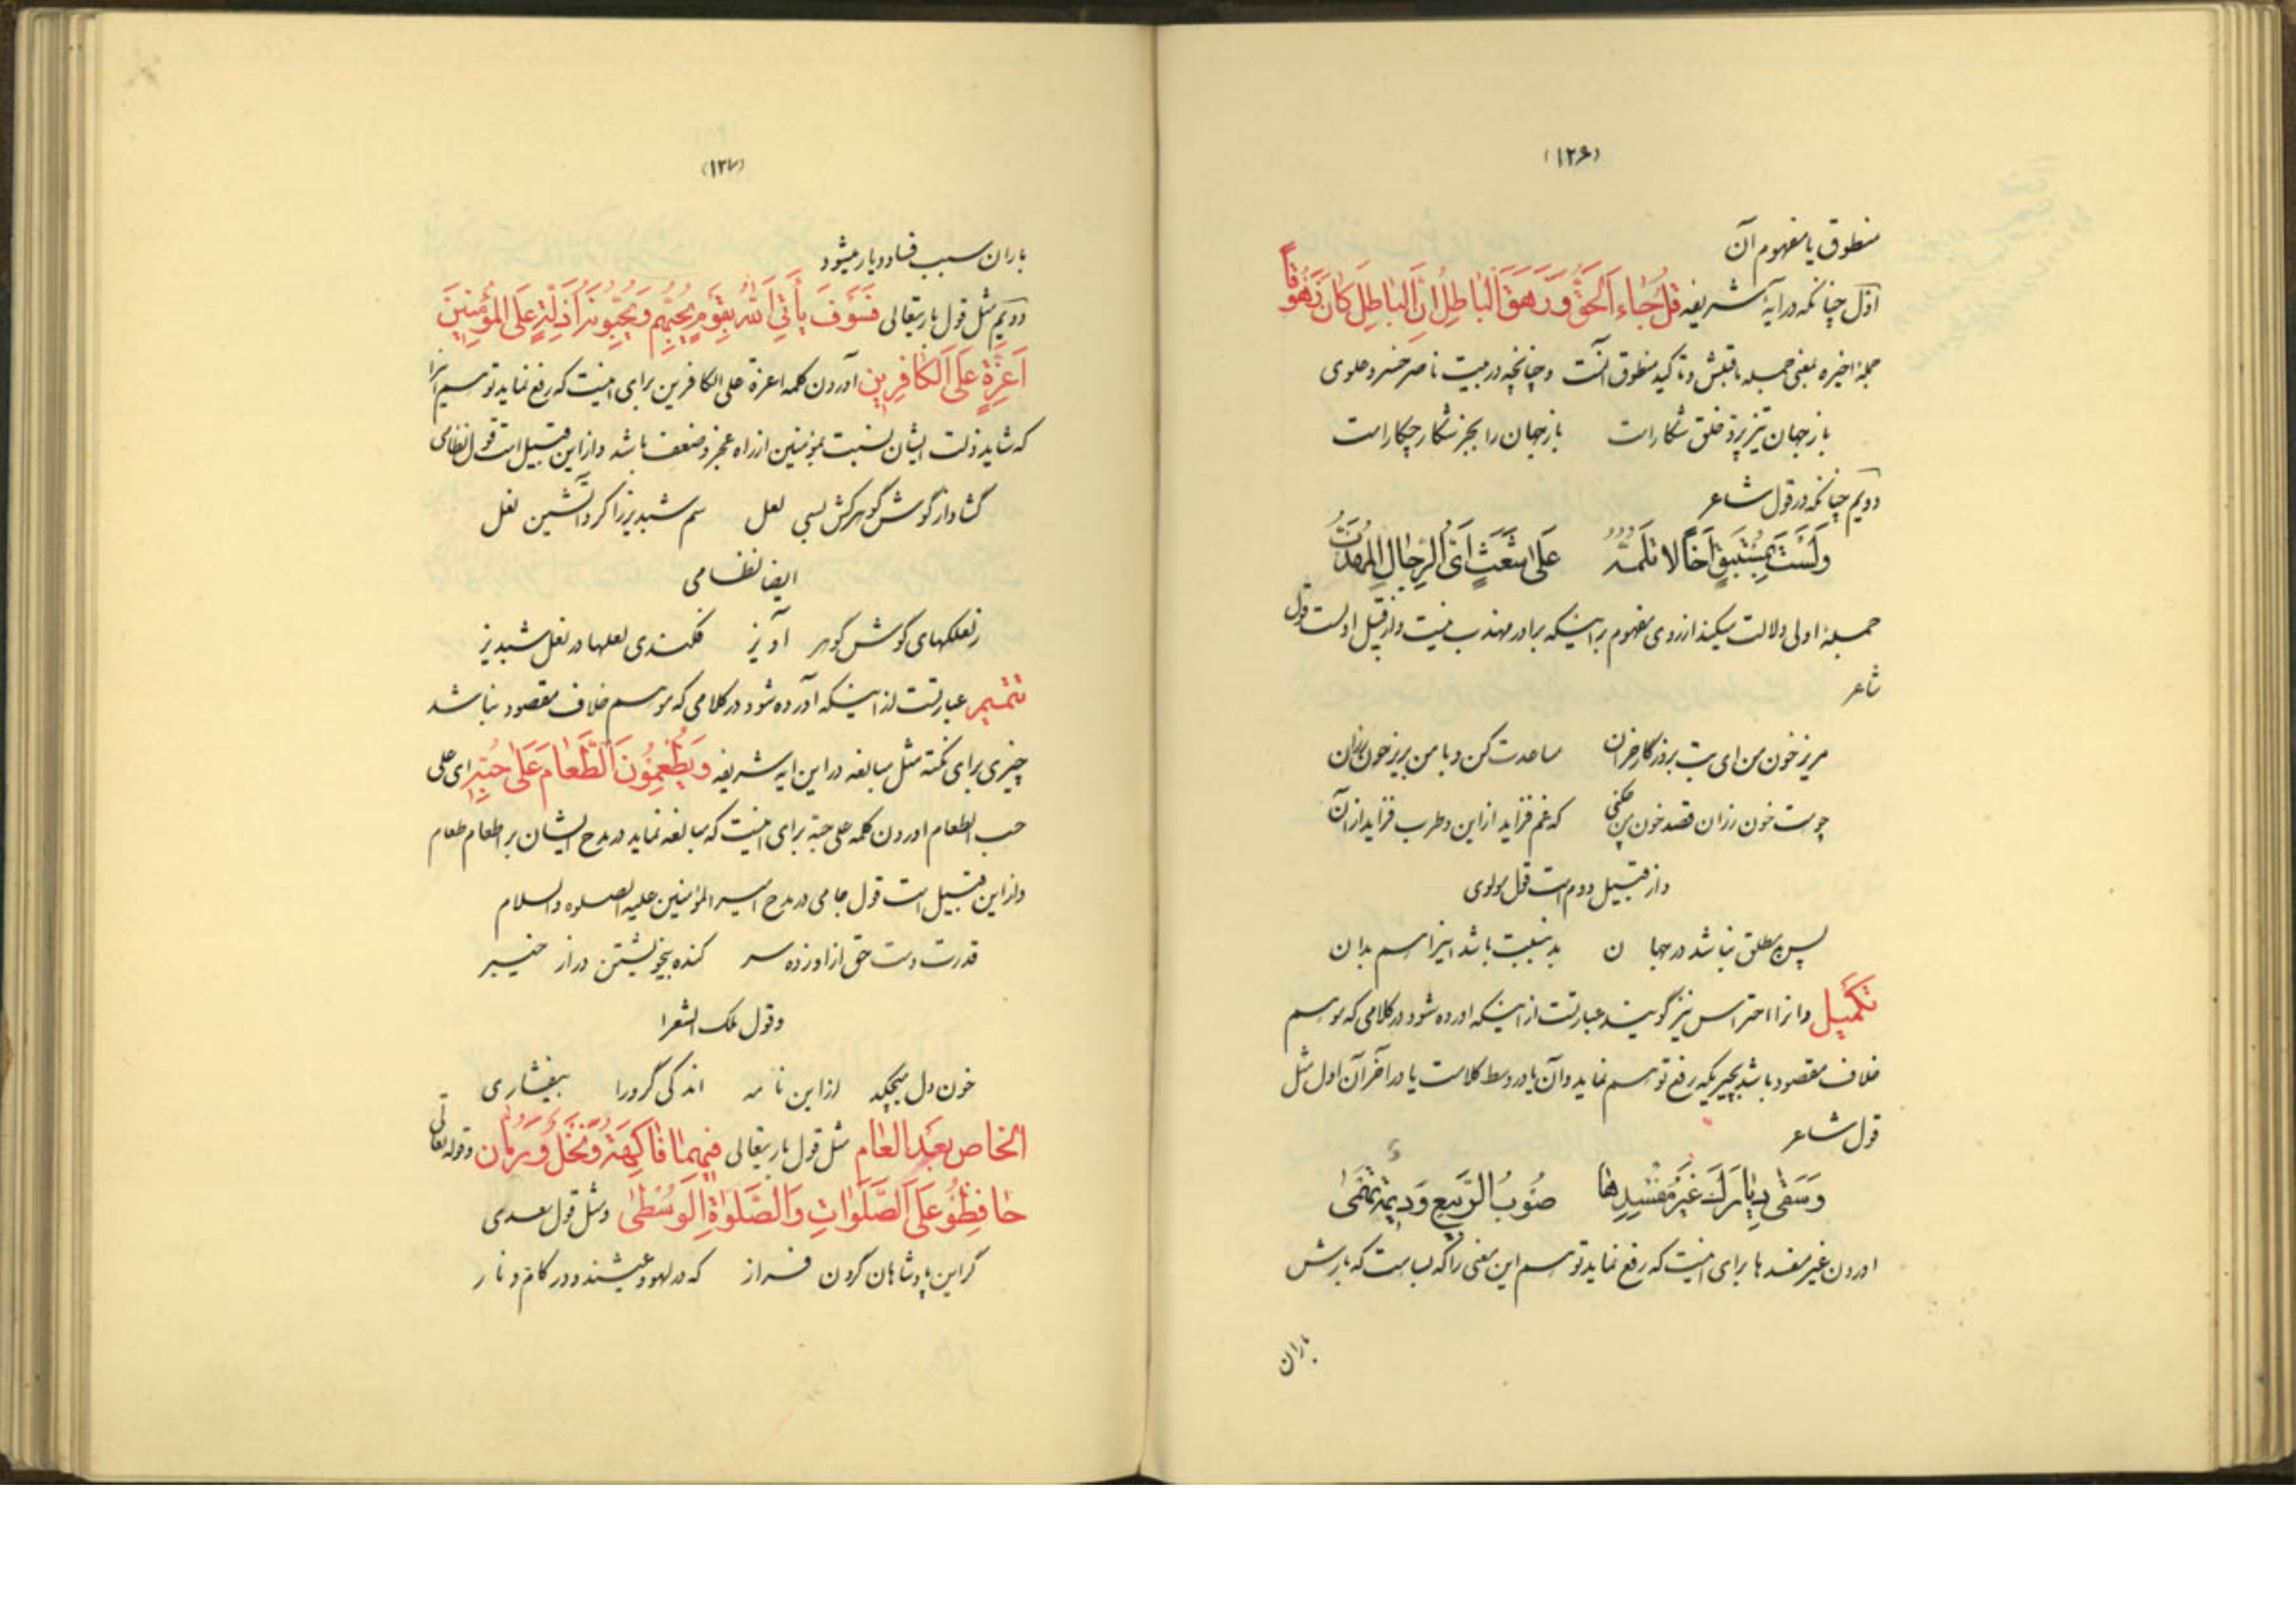 (۱۲۶)
منطوق یا مفهوم آن
اوّل چنانکه در آیهٔ شریفه قُل جٰاءَ الحَقُّ وَ زَهَقَ الباطِلُ اِنَّ الباطِلَ کانَ زَهُوقاً
جملهٔ اخیره بمعنی جمله ماقبلش و تاکید منطوق آنست و چنانچه در بیت ناصر خسرو علوی
باز جهان تیز پر و خلق شکار است باز جهان را بجز شکار چکار است
دویم چنانکه در قول شاعر
وَلَسْتَ بِمُسْتَبْقٍ اَخاً لا تَلُمَّهُ عَلیٰ شَعَثٍ اَیُّ الرِّجٰالِ المُهَذَّبُ
جملهٔ اولی دلالت میکند از روی مفهوم بر اینکه برادر مهذب نیست و از قبیل اولست قول
شاعر
مریز خون من ای بت بروزگار خزان مساعدت کن و با من بریز خون رزان
چو هست خون رزان قصد خون من چکنی که غم فزاید از این و طرب فزاید از آن
و از قبیل دوم است قول مولوی
پس بد مطلق نباشد در جهان بد بنسبت باشد اینرا هم بدان
تَکمیل و انرا احتراس نیز گویند عبارتست از اینکه اورده شود در کلامی که موهم
خلاف مقصود باشد بچیزیکه رفع توهم نماید و آن یا در وسط کلامست یا در آخر آن اول مثل
قول شاعر
وَسَقیٰ دِیٰارَكَ غَیْرَ مُفْسِدِهٰا صَوْبُ الرَّبیعِ وَ دیمَةٌ تَهْمی
اوردن غیر مفسدها برای اینست که رفع نماید توهم این معنی را که بسا هست که بارش
باران
(۱۲۷)
باران سبب فساد دیار میشود
دویم مثل قول باریتعالی فَسَوْفَ یَأْتِی اللهُ بِقَوْمٍ یُحِبُّهُم وَ یُحِبُّونَهُ اَذِلَّةٍ عَلَی المُؤْمِنینَ
اَعِزَّةٍ عَلَی الکٰافِرینَ آوردن کلمه اعزة علی الکافرین برای اینست که رفع نماید توهم اینرا
که شاید ذلت ایشان نسبت بمؤمنین از راه عجز و ضعف باشد و از این قبیل است قول نظامی
گشاد از گوش گوهرکش بسی لعل سم شبدیز را کرد آتشین نعل
ایضا نظامی
ز لعلکهای گوش گوهر آویز فکندی لعلها در نعل شبدیز
تتمیم عبارتست از اینکه آورده شود در کلامی که موهم خلاف مقصود نباشد
چیزی برای نکته مثل مبالغه در این ایه شریفه وَ یُطْعِمُونَ الطَّعٰامَ عَلیٰ حُبِّهِ ای علی
حب الطعام اوردن کلمه علی حبّه برای اینست که مبالغه نماید در مدح ایشان بر اطعام طعام
و از این قبیل است قول جامی در مدح امیر المؤمنین علیه الصلوه والسلام
قدرت دست حق از او زده سر کنده بیخویشتن در از خیبر
وقول ملک الشعرا
خون دل میچکد از این نامه اندکی گر ورا بیفشاری
الخاص بعد العام مثل قول باریتعالی فیهِمٰا فٰاکِهَةٌ وَ نَخْلٌ وَ رُمّان وقوله تعالی
حٰافِظُوْ عَلَی الصَّلَوٰاتِ وَالصَّلوٰةِ الوُسْطیٰ و مثل قول سعدی
گر این پادشاهان گردن فراز که در لهو و عیشند و در کام و ناز